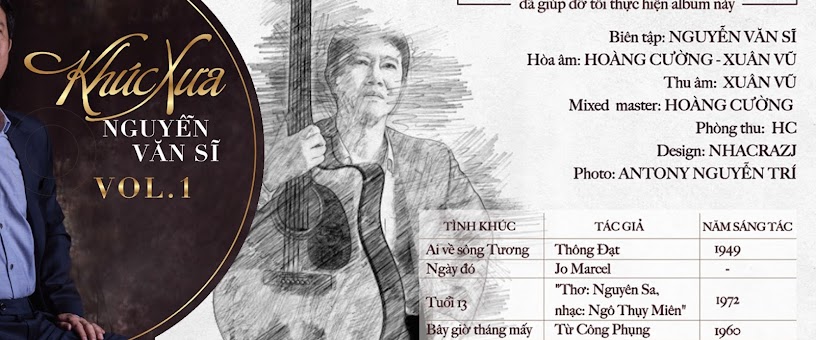 Khúc Xưa
NGUYỄN
VĂN SĨ
VOL.1
đã giúp đỡ tôi thực hiện album này
Biên tập: NGUYỄN VĂN SĨ
Hòa âm: HOÀNG CƯỜNG - XUÂN VŨ
Thu âm: XUÂN VŨ
Mixed master: HOÀNG CƯỜNG
Phòng thu: HC
Design: NHACRAZJ
Photo: ANTONY NGUYỄN TRÍ
TÌNH KHÚC TÁC GIẢ NĂM SÁNG TÁC
Ai về sông Tương Thông Đạt 1949
Ngày đó Jo Marcel -
Tuổi 13 "Thơ: Nguyên Sa,
nhạc: Ngô Thụy Miên" 1972
Bây giờ tháng mấy Từ Công Phụng 1960